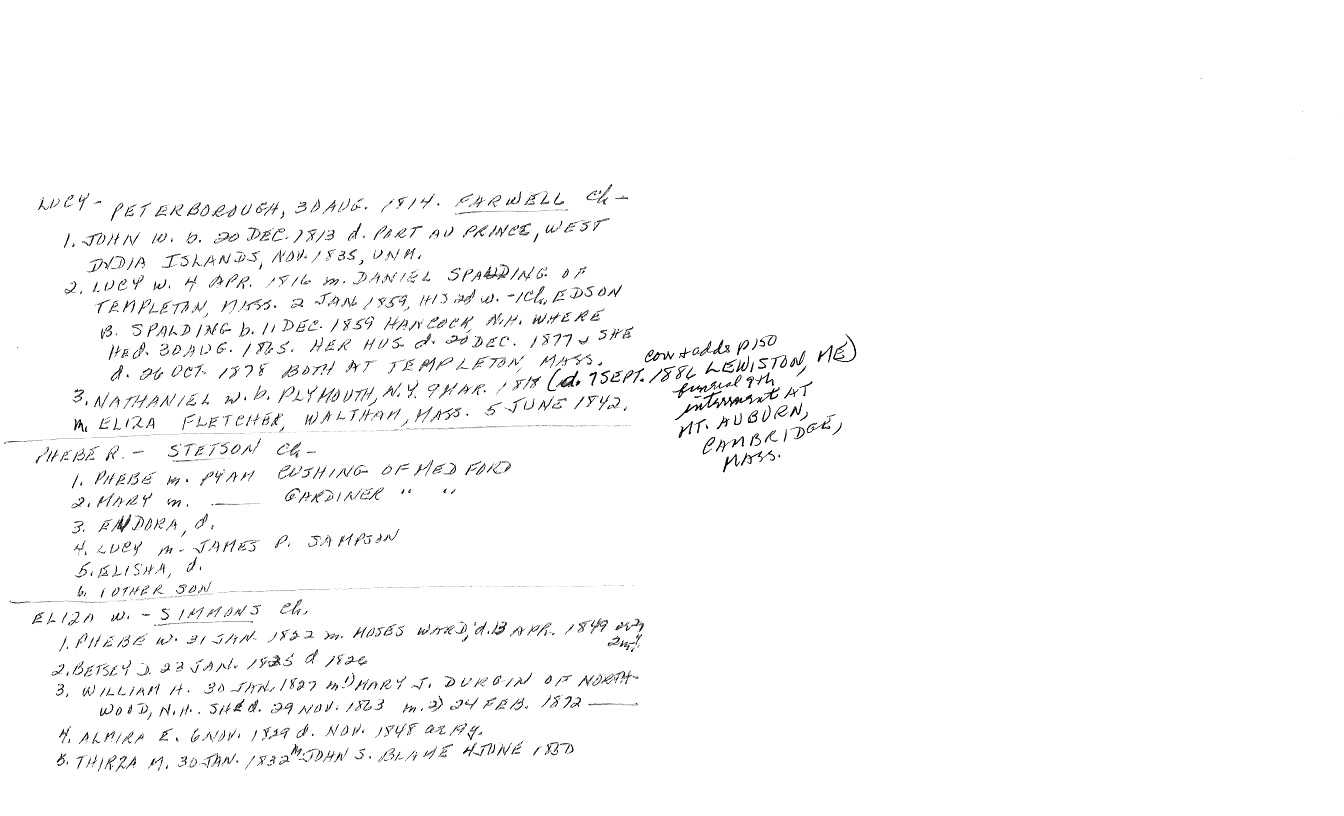 LUCY - PETERBOROUGH, 30 AUG. 1814. FARWELL Ch -
1. JOHN W. b. 20 DEC. 1813 d. PORT AU PRINCE, WEST
INDIA ISLANDS, NOV. 1835, UNM.
2. LUCY W. 4 APR. 1816 m. DANIEL SPAULDING OF
TEMPLETON, MASS. 2 JAN 1859, HIS 2d W. - 1 Ch, EDSON
B. SPALDING b. 11 DEC. 1859 HANCOCK, N.H. WHERE
HE d. 30 AUG. 1865. HER HUS. d. 20 DEC. 1877 & SHE
d. 26 OCT. 1878 BOTH AT TEMPLETON, MASS.
3. NATHANIEL W. b. PLYMOUTH, N.Y. 9 MAR. 1818 (d. 7 SEPT. 1886 LEWISTON, ME)
m. ELIZA FLETCHER, WALTHAM, MASS. 5 JUNE 1842.
corr + adds p 150
funeral 9th
interment AT
MT. AUBURN,
CAMBRIDGE,
MASS.
PHEBE R. - STETSON Ch -
1. PHEBE m. PYAM CUSHING OF MEDFORD
2. MARY m. ____ GARDINER " "
3. ENDORA, d.
4. LUCY m. JAMES P. SAMPSON
5. ELISHA, d.
6. 1 OTHER SON
ELIZA W. - SIMMONS Ch.
1. PHEBE W. 31 JAN. 1822 m. MOSES WARD, d. 13 APR. 1849 ae 27
2m.
2. BETSEY D. 23 JAN. 1825 d 1826
3. WILLIAM H. 30 JAN. 1827 m. 1) MARY J. DURGIN OF NORTH-
WOOD, N.H.. SHE d. 29 NOV. 1863 m. 2) 24 FEB. 1872 ____
4. ALMIRA E. 6 NOV. 1829 d. NOV. 1848 ae 19y.
5. THIRZA M. 30 JAN. 1832 m. JOHN S. BLAKE 4 JUNE 1850